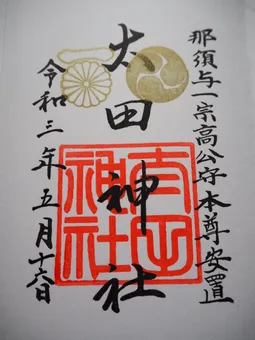 那須与一宗高公守本尊安置
太田神社
令和三年五月十六日